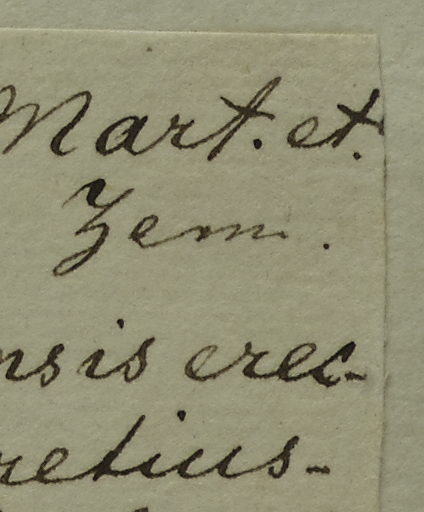 Mart. et.
Zem.
nsis erec-
retius-